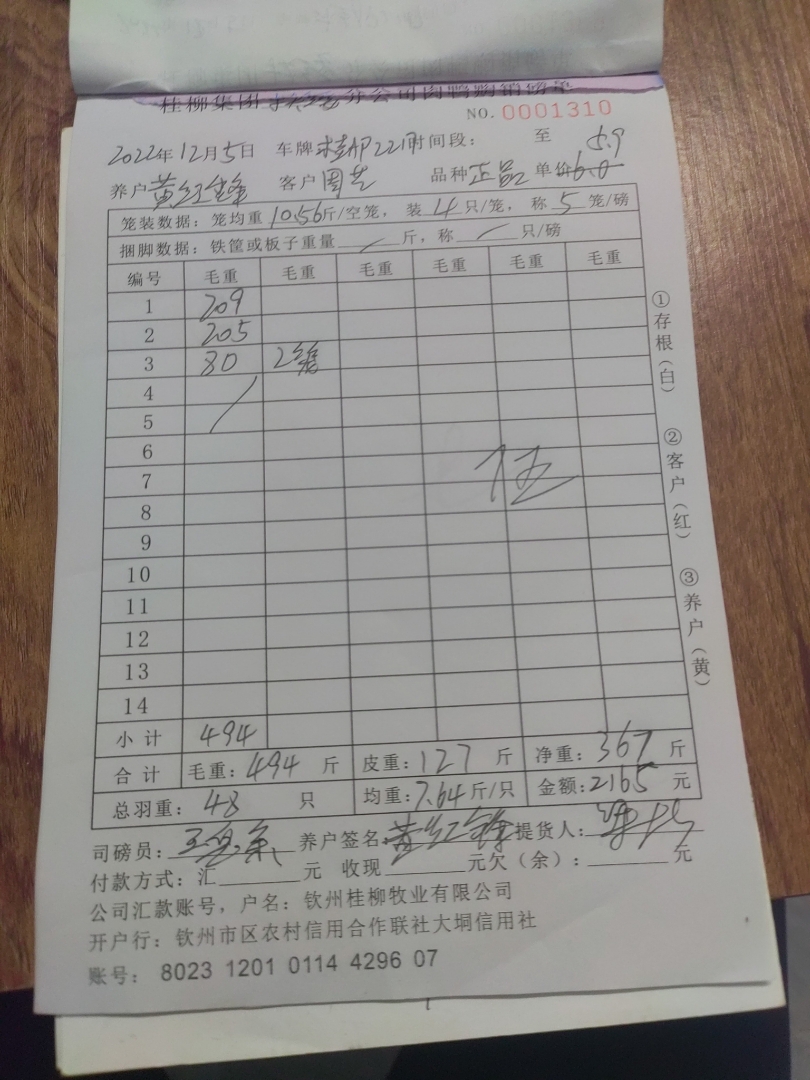 桂柳集团 分公司肉鸭购销磅单
NO. 0001310
2022年12月5日 车牌 桂AP221 时间段： 至
5.9
养户 黄红锋 客户 周芝 品种 正品 单价 6.0
笼装数据：笼均重 10.56 斤/空笼，装 4 只/笼，称 5 笼/磅
捆脚数据：铁筐或板子重量 / 斤，称 / 只/磅
编号 毛重 毛重 毛重 毛重 毛重 毛重
1 209
2 205
3 80 2笼
4
5
6
7
8
9
10
11
12
13
14
伍
小计 494
合计 毛重：494 斤 皮重：127 斤 净重：367 斤
总羽重：48 只 均重：7.64 斤/只 金额：2165 元
司磅员： 养户签名 黄红锋 提货人：
付款方式：汇 元 收现 元欠（余）： 元
公司汇款账号，户名：钦州桂柳牧业有限公司
开户行：钦州市区农村信用合作联社大垌信用社
账号： 8023 1201 0114 4296 07
①存根（白）
②客户（红）
③养户（黄）